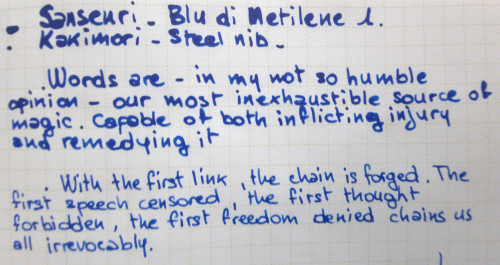 - Sansenri - Blu di Metilene 1.
: Kakimori - Steel nib -
.Words are - in my not so humble
opinion - our most inexhaustible source of
magic. Capable of both inflicting injury
and remedying it
. With the first link, the chain is forged. The
first speech censored, the first thought
forbidden, the first freedom denied chains us
all irrevocably.